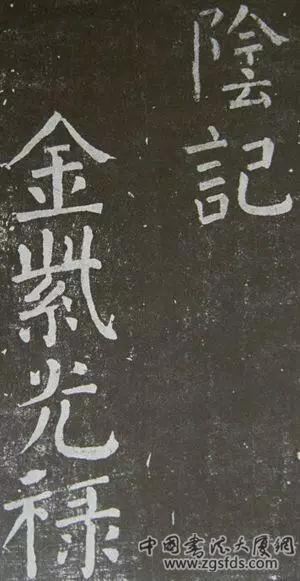 陰記
金紫光禄
中国书法大厦网
www.zgsfds.com